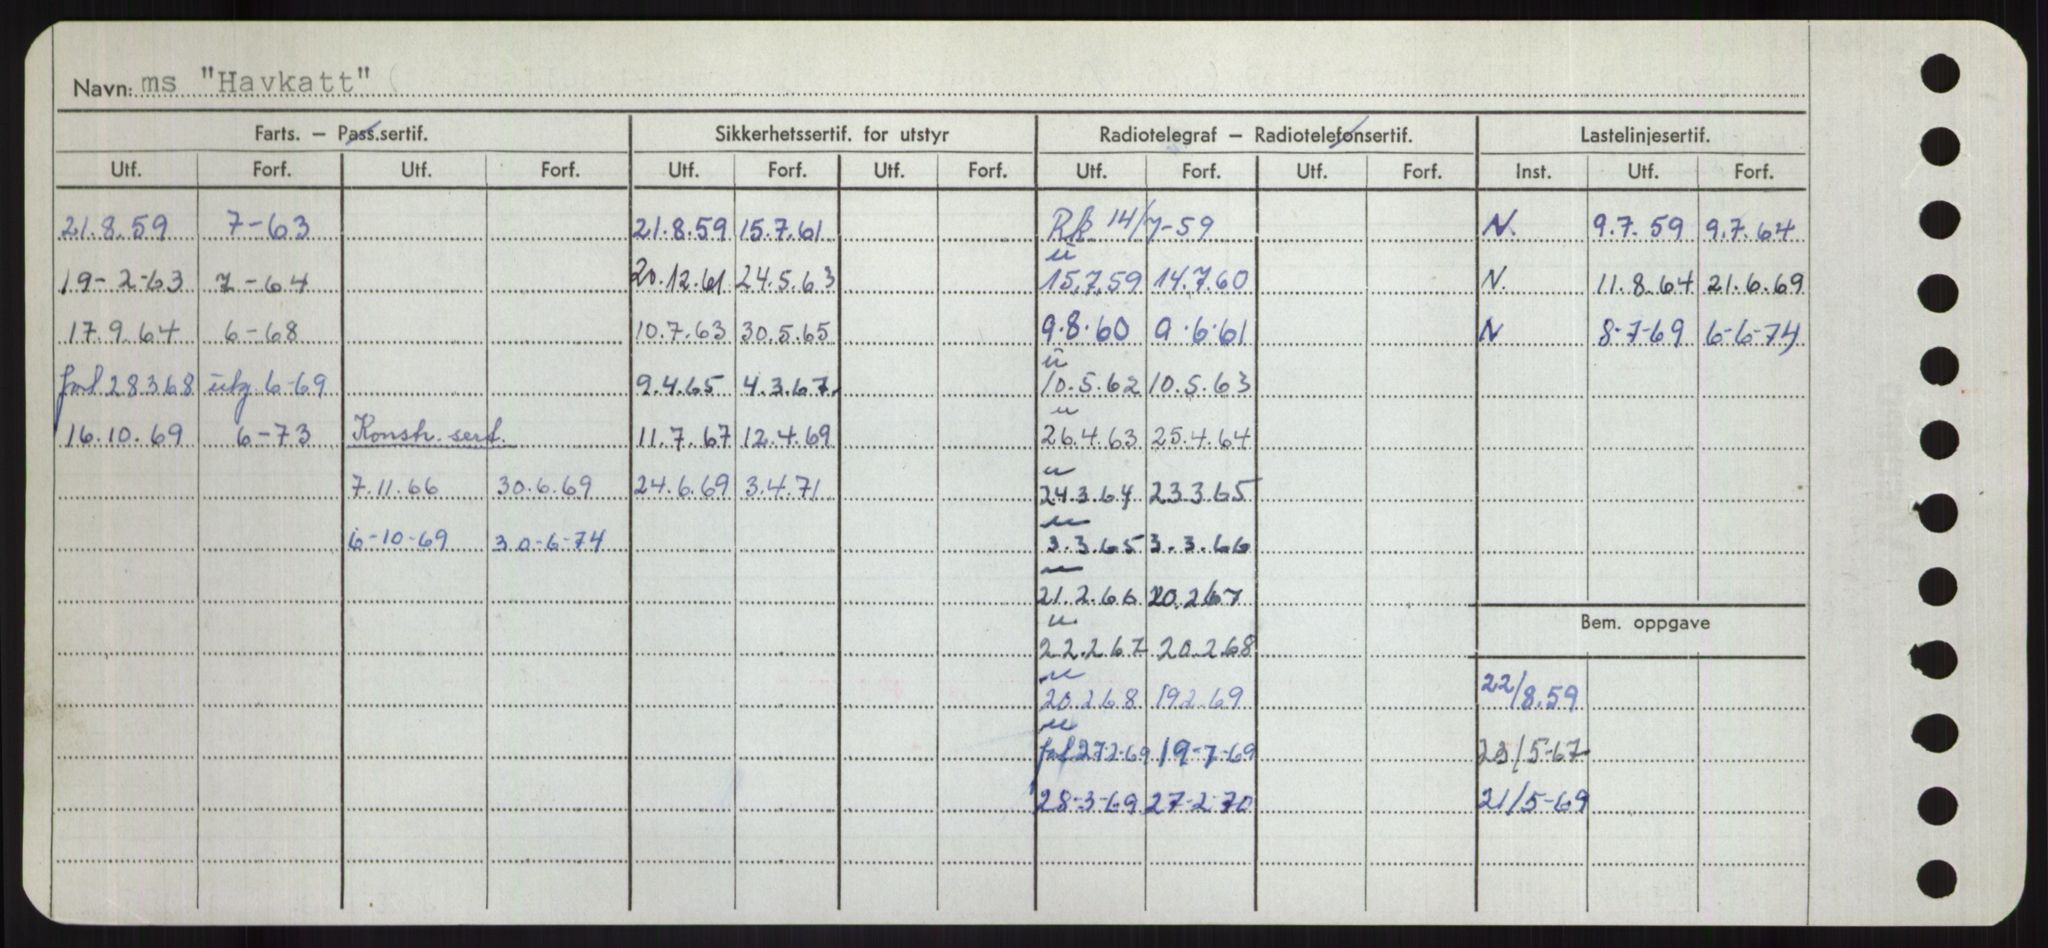 Navn: ms "Havkatt"
Farts. – Pass.sertif. Sikkerhetssertif. for utstyr Radiotelegraf – Radiotelefonsertif. Lastelinjesertif.
Utf. Forf. Utf. Forf. Utf. Forf. Utf. Forf. Utf. Forf. Utf. Forf. Inst. Utf. Forf.
21.8.59 7-63 21.8.59 15.7.61 Rk 14/7-59 N. 9.7.59 9.7.64
u
19-2-63 7-64 20.12.61 24.5.63 15.7.59 14.7.60 N. 11.8.64 21.6.69
17.9.64 6-68 10.7.63 30.5.65 9.8.60 9.6.61 N 8-7-69 6-6-74
u
forl 28368 utg. 6-69 9.4.65 4.3.67 10.5.62 10.5.63
u
16.10.69 6-73 Konstr. sert. 11.7.67 12.4.69 26.4.63 25.4.64
u
7.11.66 30.6.69 24.6.69 3.4.71 24.3.64 23.3.65
u
6-10-69 30-6-74 3.3.65 3.3.66
u
21.2.66 20.2.67
u
Bem. oppgave
22.2.67 20.2.68
u
20.2.68 19.2.69 22/8.59
u
forl 27-2-69 19-7-69 23/5-67
28-3-69 27-2-70 21/5-69